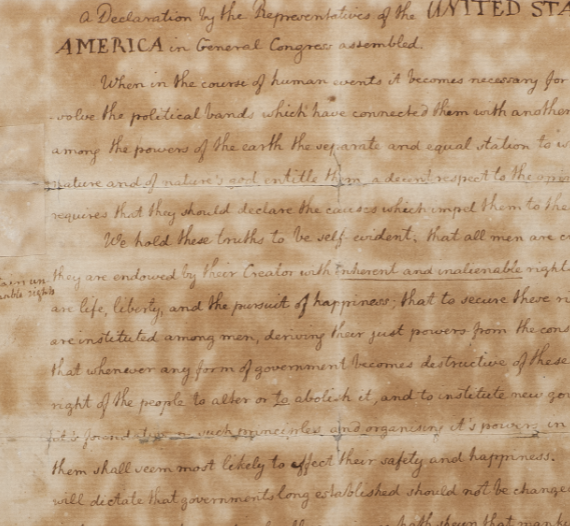 a Declaration by the Representatives of the UNITED STA
AMERICA in General Congress assembled.
When in the course of human events it becomes necessary for
-volve the political bands which have connected them with another
among the powers of the earth the separate and equal station to
nature and of nature's god entitle them, a decent respect to the
requires that they should declare the causes which impel them to the
We hold these truths to be self-evident; that all men are
they are endowed by their Creator with inherent and inalienable right
are life, liberty, and the pursuit of happiness; that to secure these
are instituted among men, deriving their just powers from the cons
that whenever any form of government becomes destructive of these
right of the people to alter or to abolish it, and to institute new gov
it's foundation on such principles and organising it's powers in
them shall seem most likely to effect their safety and happiness.
will dictate that governments long established should not be change
hath shewn that mank